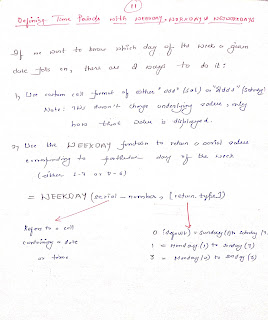 11
Defining Time Periods with WEEKDAY, WORKDAY & NETWORKDAYS
If we want to know which day of the week a given
date falls on, there are 2 ways to do it:
1) Use custom cell format of either "ddd" (Sat) or "dddd" (Saturday)
Note: This doesn't change underlying value, only
how that value is displayed.
2) Use the WEEKDAY function to return a serial value
corresponding to particular day of the week
(either 1-7 or 0-6)
= WEEKDAY (serial_number, [return_type])
Refers to a cell
containing a date
or time
0 (default) = Sunday (1) to Saturday (7)
1 = Monday (1) to Sunday (7)
3 = Monday (0) to Sunday (6)